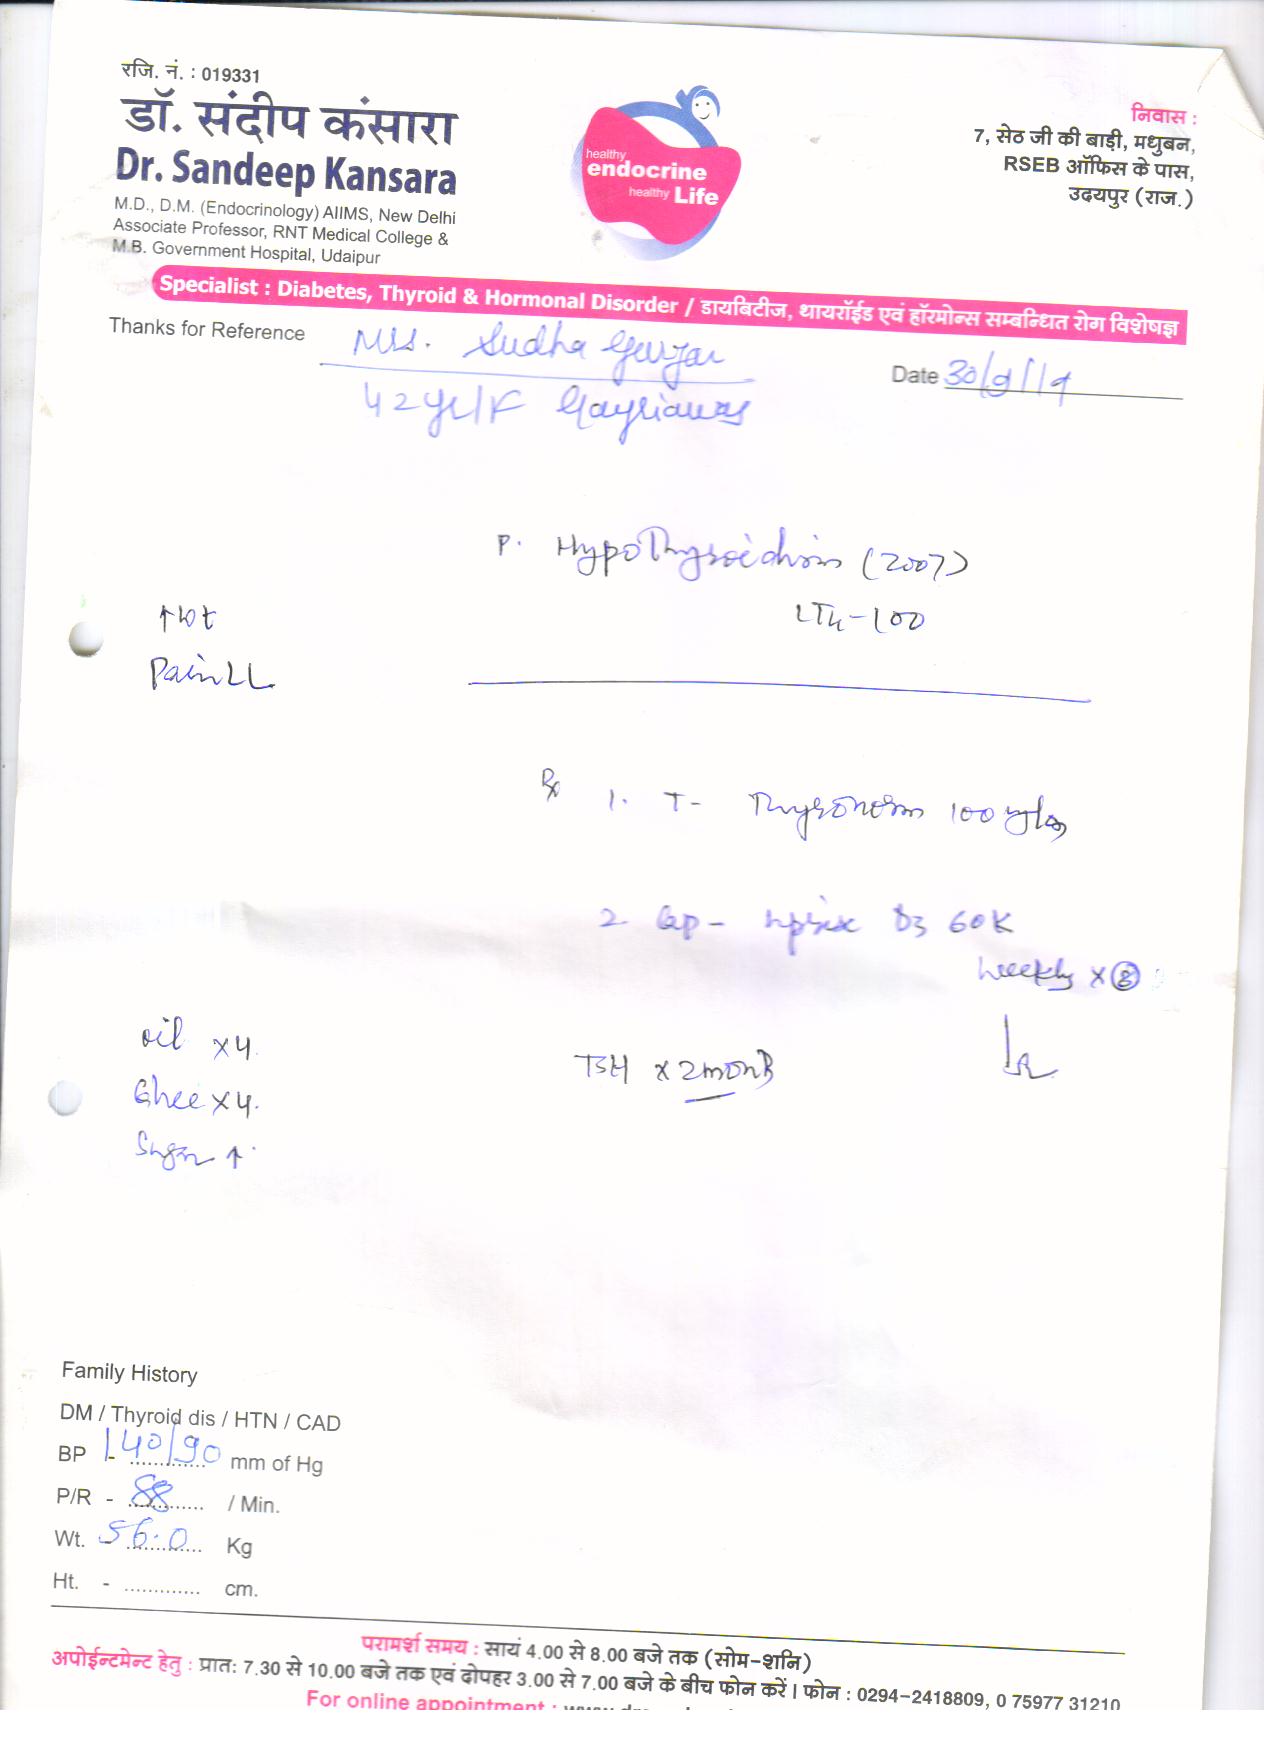 रजि. नं. : 019331
डॉ. संदीप कंसारा
Dr. Sandeep Kansara
M.D., D.M. (Endocrinology) AIIMS, New Delhi
Associate Professor, RNT Medical College &
M.B. Government Hospital, Udaipur
healthy
endocrine
healthy Life
निवास :
7, सेठ जी की बाड़ी, मधुबन,
RSEB ऑफिस के पास,
उदयपुर (राज.)
Specialist : Diabetes, Thyroid & Hormonal Disorder / डायबिटीज, थायरॉईड एवं हॉरमोन्स सम्बन्धित रोग विशेषज्ञ
Thanks for Reference Mrs. Sudha Gurjar
Date 30/9/19
42yr/F Gayriawas
P. Hypothyroidism (2007)
LT4-100
↑Wt
Pain LL
Rx 1. T- Thyronorm 100
2 Cap - D3 60K
weekly x 8
TSH x 2 month
oil x4.
Ghee x4.
Sugar ↑.
Family History
DM / Thyroid dis / HTN / CAD
BP - 140/90 mm of Hg
P/R - 88 / Min.
Wt. - 56.0 Kg
Ht. - ............. cm.
परामर्श समय : सायं 4.00 से 8.00 बजे तक (सोम-शनि)
अपोईन्टमेन्ट हेतु : प्रातः 7.30 से 10.00 बजे तक एवं दोपहर 3.00 से 7.00 बजे के बीच फोन करें। फोन : 0294-2418809, 0 75977 31210
For online appointment :